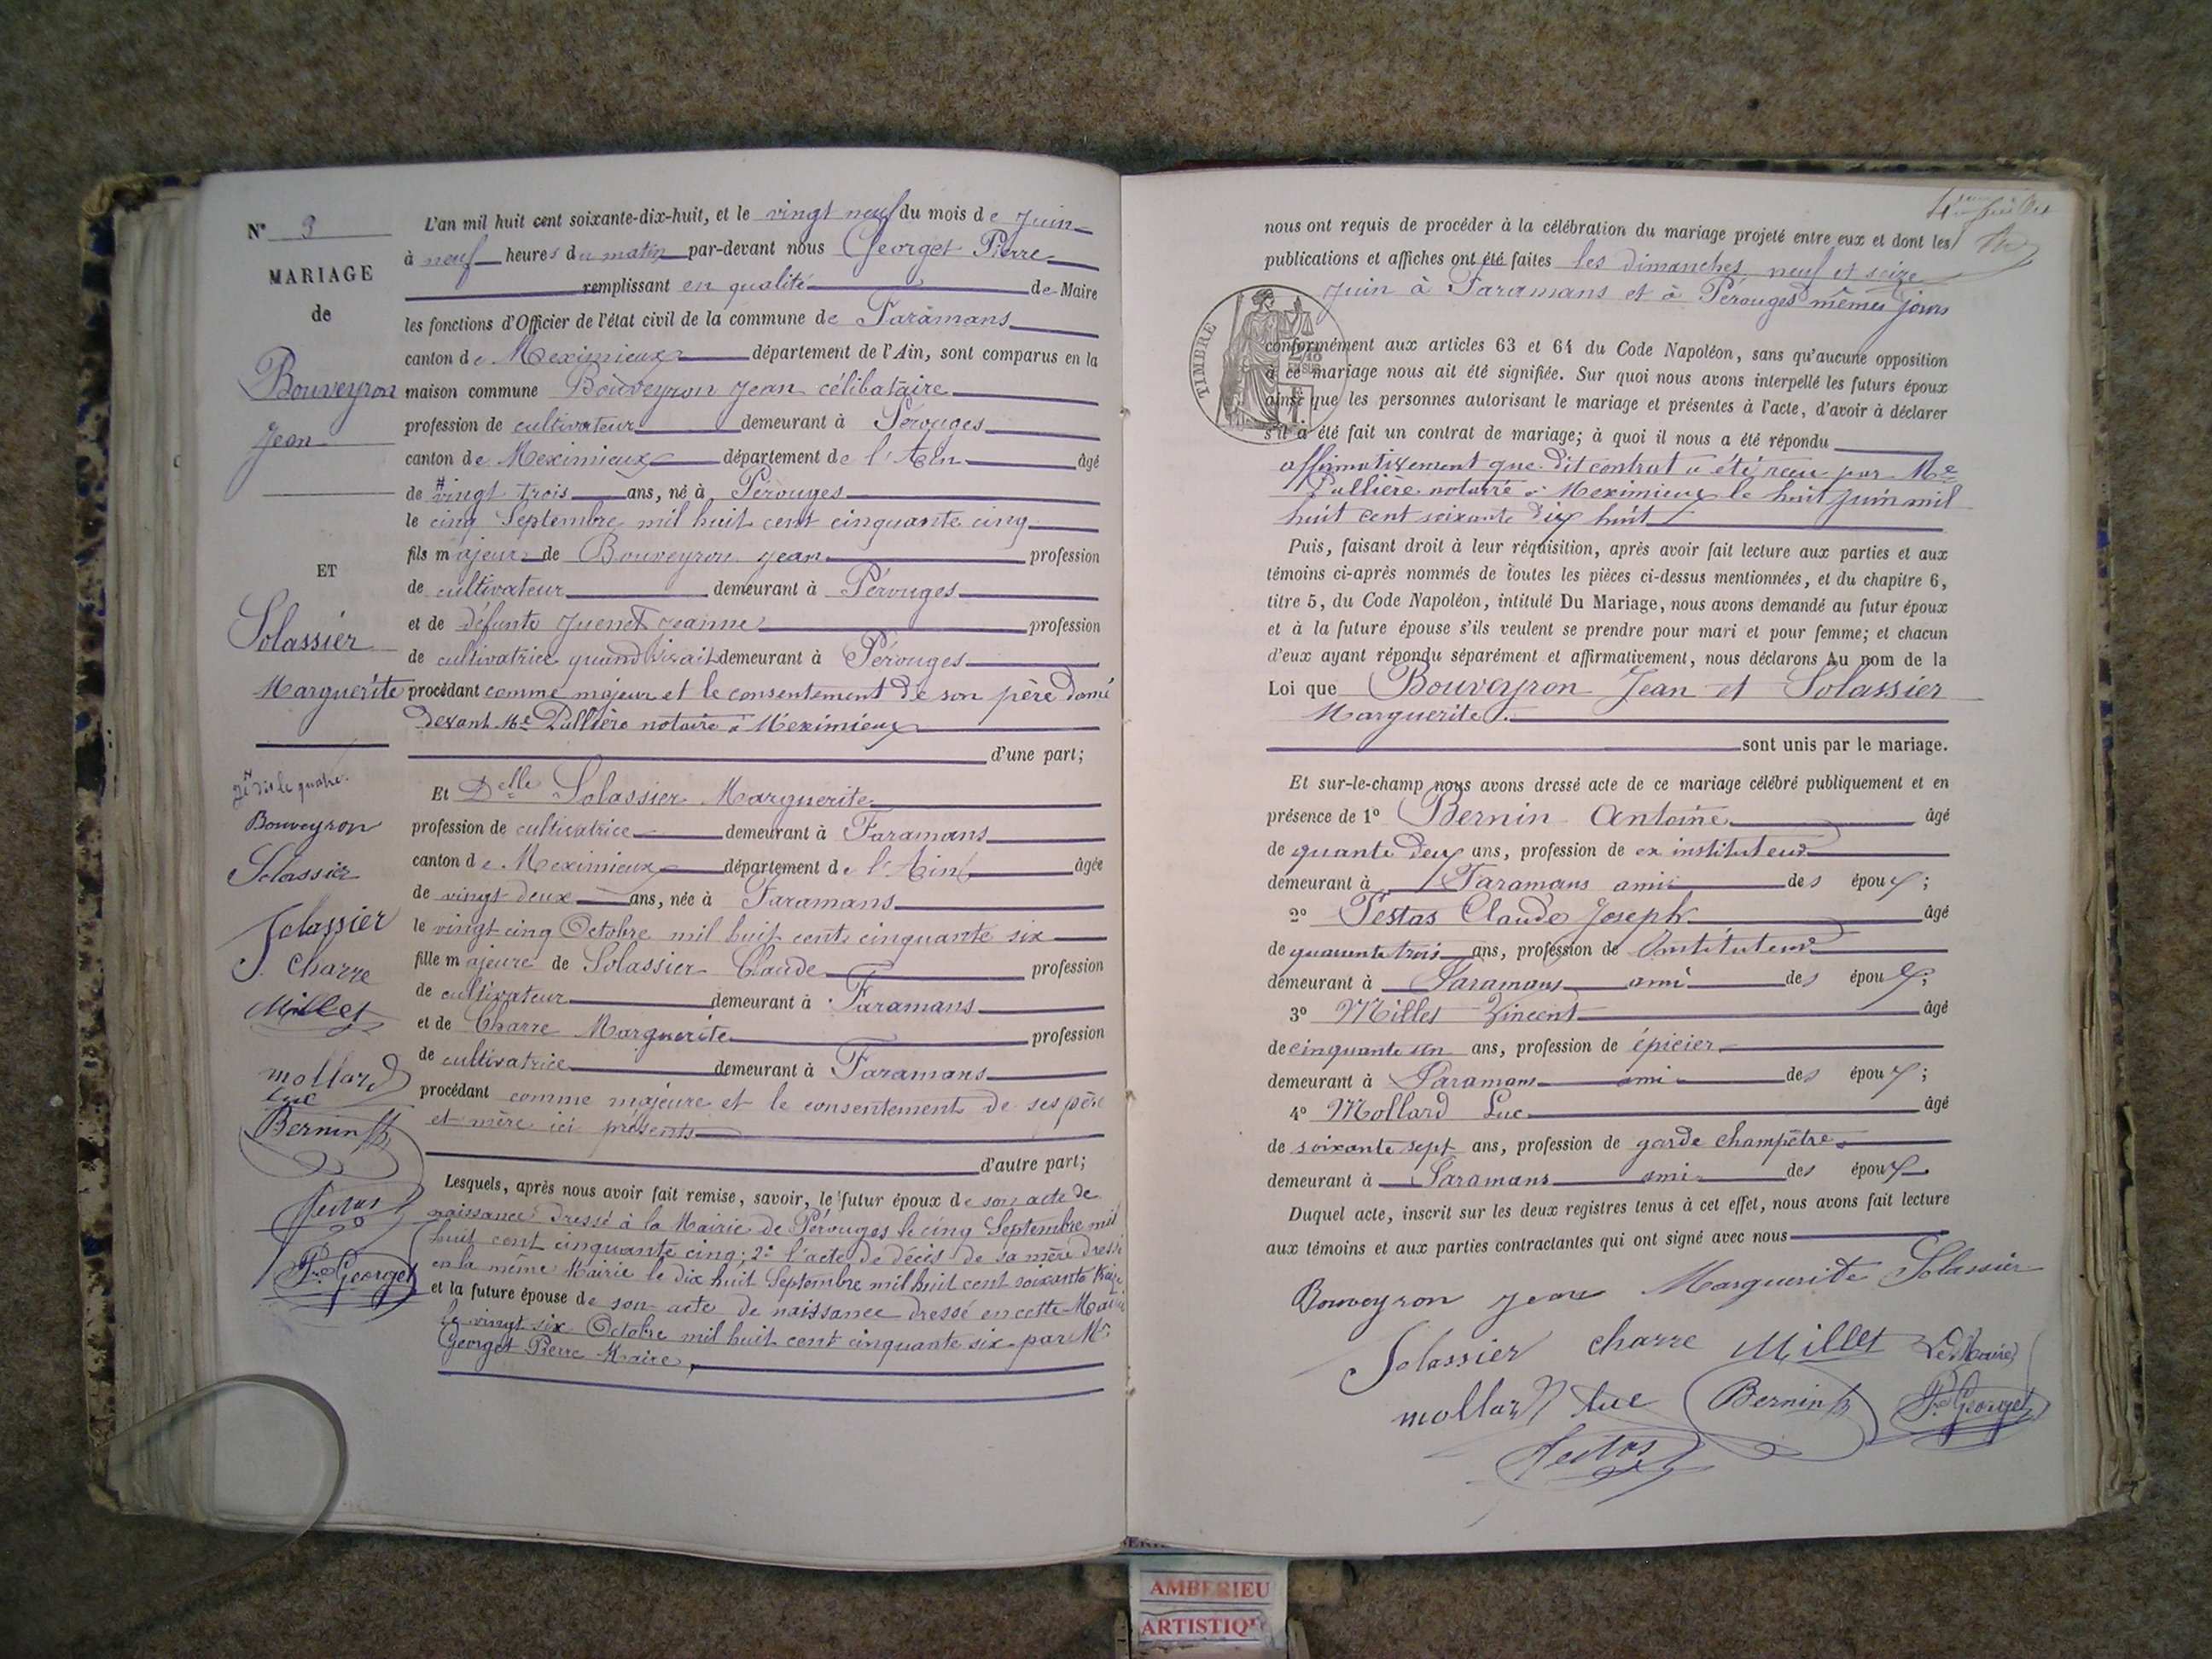 N° 3
MARIAGE
de
Bouveyron
Jean
ET
Solassier
Marguerite
Bouveyron
Solassier
Solassier
Charre
Millet
mollard
Luc
Bernin
Testas
Pre Georget
L'an mil huit cent soixante-dix-huit, et le vingt neuf du mois de Juin
à neuf heures du matin par-devant nous Georget Pierre
remplissant en qualité de Maire
les fonctions d'Officier de l'état civil de la commune de Faramans
canton de Meximieux département de l'Ain, sont comparus en la
maison commune Bouveyron Jean célibataire
profession de cultivateur demeurant à Pérouges
canton de Meximieux département de l'Ain âgé
de vingt trois ans, né à Pérouges
le cinq Septembre mil huit cent cinquante cinq
fils majeur de Bouveyron Jean profession
de cultivateur demeurant à Pérouges
et de défunte Juenet Jeanne profession
de cultivatrice quand vivait demeurant à Pérouges
procédant comme majeur et le consentement de son père donné
devant Me Pallière notaire à Meximieux
d'une part;
Et Delle Solassier Marguerite
profession de cultivatrice demeurant à Faramans
canton de Meximieux département de l'Ain âgée
de vingt deux ans, née à Faramans
le vingt cinq Octobre mil huit cent cinquante six
fille majeure de Solassier Claude profession
de cultivateur demeurant à Faramans
et de Charre Marguerite profession
de cultivatrice demeurant à Faramans
procédant comme majeure et le consentement de ses père
et mère ici présents
d'autre part;
Lesquels, après nous avoir fait remise, savoir, le futur époux de son acte de
naissance dressé à la Mairie de Pérouges le cinq Septembre mil
huit cent cinquante cinq; 2° l'acte de décès de sa mère dressé
en la même Mairie le dix huit Septembre mil huit cent soixante treize
et la future épouse de son acte de naissance dressé en cette Mairie
le vingt six Octobre mil huit cent cinquante six par Mr
Georget Pierre Maire,
nous ont requis de procéder à la célébration du mariage projeté entre eux et dont les
publications et affiches ont été faites les dimanches neuf et seize
Juin à Faramans et à Pérouges mêmes jours
TIMBRE
conformément aux articles 63 et 64 du Code Napoléon, sans qu'aucune opposition
à ce mariage nous ait été signifiée. Sur quoi nous avons interpellé les futurs époux
ainsi que les personnes autorisant le mariage et présentes à l'acte, d'avoir à déclarer
s'il a été fait un contrat de mariage; à quoi il nous a été répondu
affirmativement que dit contrat a été reçu par Me
Pallière notaire à Meximieux le huit juin mil
huit cent soixante dix huit
Puis, faisant droit à leur réquisition, après avoir fait lecture aux parties et aux
témoins ci-après nommés de toutes les pièces ci-dessus mentionnées, et du chapitre 6,
titre 5, du Code Napoléon, intitulé Du Mariage, nous avons demandé au futur époux
et à la future épouse s'ils veulent se prendre pour mari et pour femme; et chacun
d'eux ayant répondu séparément et affirmativement, nous déclarons Au nom de la
Loi que Bouveyron Jean et Solassier
Marguerite
sont unis par le mariage.
Et sur-le-champ nous avons dressé acte de ce mariage célébré publiquement et en
présence de 1° Bernin Antoine âgé
de quante deux ans, profession de ex instituteur
demeurant à Faramans ami des époux;
2° Testas Claude Joseph âgé
de quarante trois ans, profession de Instituteur
demeurant à Faramans ami des époux;
3° Millet Vincent âgé
de cinquante un ans, profession de épicier
demeurant à Faramans ami des époux;
4° Mollard Luc âgé
de soixante sept ans, profession de garde champêtre
demeurant à Faramans ami des époux
Duquel acte, inscrit sur les deux registres tenus à cet effet, nous avons fait lecture
aux témoins et aux parties contractantes qui ont signé avec nous
Bouveyron Jean Marguerite Solassier
Solassier Charre Millet Le Maire
mollard luc Bernin Pre Georget
Testas
AMBERIEU
ARTISTIQU